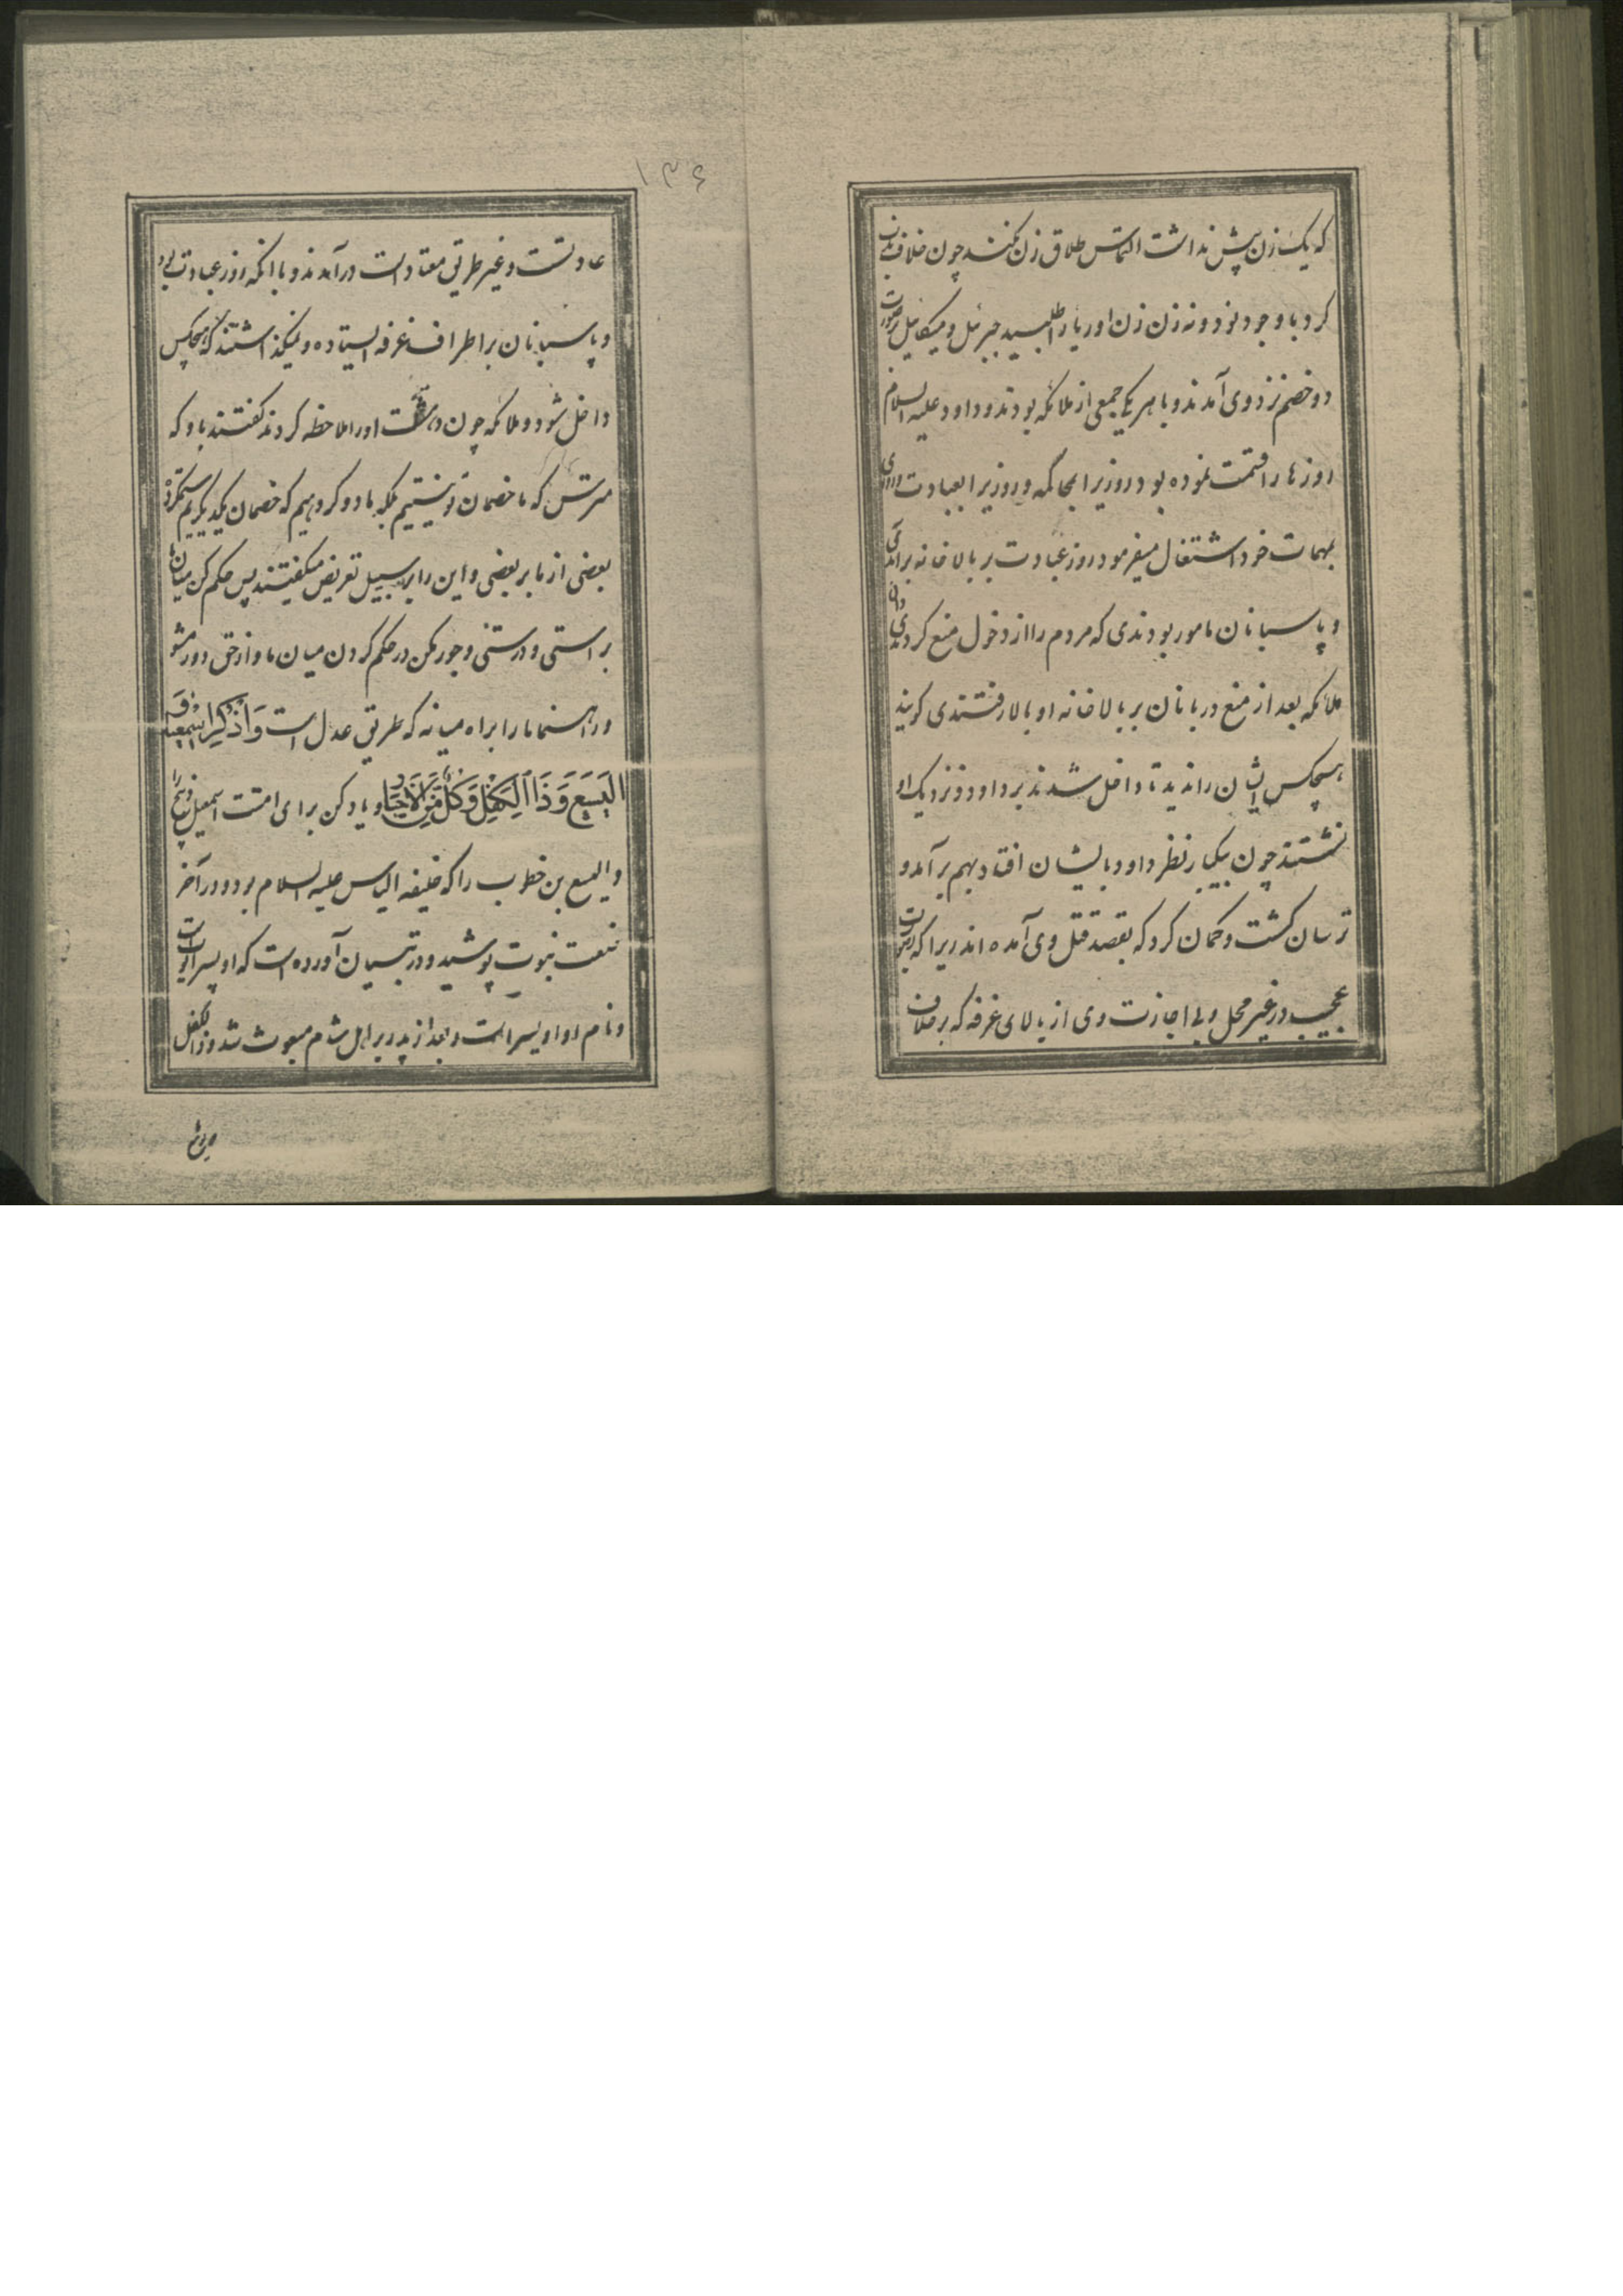 که یک زن بیش نداشت التماس طلاق زن کنند چون خلاف آن
کرد با وجود نود و نه زن زن اوریا را طلبید جبرئیل و میکائیل بصورت
دو خصم نزد وی آمدند و با هر یک جمعی از ملائکه بودند و داود علیه السلام
روزها را قسمت نموده بود روزی را بمحاکمه و روزی را بعبادت و روزی
بمهمات خود اشتغال میفرمود روز عبادت بر بالاخانه برآمدی
و پاسبانان مامور بودندی که مردم را از دخول منع کردندی و آن
ملائکه بعد از منع دربانان بر بالاخانه او بالا رفتندی کویند
هیچکس ایشان را ندید تا داخل شدند بر داود و نزدیک او
نشستند چون بیکبار نظر داود بایشان افتاد بهم برآمد و
ترسان کشت و کمان کرد که بقصد قتل وی آمده اند زیرا که بصورت
عجیب در غیر محل و بی اجازت وی از بالای غرفه که بر خلاف
۱۳۶
عادتست و غیر طریق معتاد است درآمدند و باآنکه روز عبادت بود
و پاسبانان بر اطراف غرفه ایستاده و نمیکذاشتند که هیچکس
داخل شود و ملائکه چون دهشت او را ملاحظه کردند کفتند باو که
مترس که ما خصمان تو نیستیم بلکه ما دو کروهیم که خصمان یکدیکریم ستم کرده
بعضی از ما بر بعضی و این را بر سبیل تعریض میکفتند پس حکم کن میان ما
براستی و درستی و جور مکن در حکم کردن میان ما و از حق دور مشو
و راهنما ما را براه میانه که طریق عدل است وَاذْكُرْ اِسْمٰعِیلَ وَ
الْیَسَعَ وَذَا الْكِفْلِ وَكُلٌّ مِنَ الْاَخْیَارِ و یاد کن برای امتت اسمعیل ذبیح را
و الیسع بن خطوب را که خلیفه الیاس علیه السلام بود و در آخر
خلعت نبوت پوشید و در تبیان آورده است که او پسر ایوب است
و نام او و بعد از پدر بر اهل شام مبعوث شد و ذالکفل